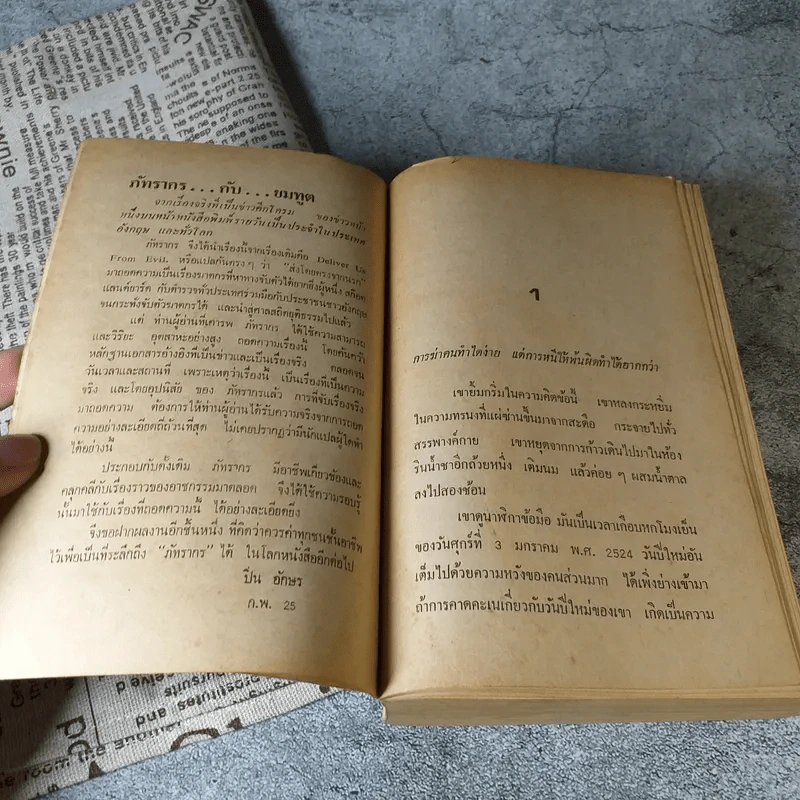 ภัทรากร . . . กับ . . . ยมทูต
จากเรื่องจริงที่เป็นข่าวคึกโครม ของข่าวหน้า
หนึ่งบนหน้าหนังสือพิมพ์รายวันเป็นประจำในประเทศ
อังกฤษ และทั่วโลก
ภัทรากร จึงได้นำเรื่องนี้จากเรื่องเดิมคือ Deliver Us
From Evil. หรือแปลกันตรงๆ ว่า "ส่งโดยตรงจากนรก"
มาถอดความเป็นเรื่องฆาตกรที่หาทางจับตัวได้ยากยิ่งผู้หนึ่ง สก๊อต
แลนด์ยาร์ด กับตำรวจทั่วประเทศร่วมมือกับประชาชนชาวอังกฤษ
จนกระทั่งจับตัวฆาตกรได้ และนำสู่ศาลสถิตยุติธรรมไปแล้ว
แต่ ท่านผู้อ่านที่เคารพ ภัทรากร ได้ใช้ความสามารถ
และวิริยะ อุตสาหะอย่างสูง ถอดความเรื่องนี้ โดยค้นคว้า
หลักฐานเอกสารอ้างอิงที่เป็นข่าวและเป็นเรื่องจริง ตลอดจน
วันเวลาและสถานที่ เพราะเหตุว่าเรื่องนี้ เป็นเรื่องที่เป็นความ
จริง และโดยอุปนิสัย ของ ภัทรากรแล้ว การที่จับเรื่องจริง
มาถอดความ ต้องการให้ท่านผู้อ่านได้รับความจริงจากการถอด
ความอย่างละเอียดถี่ถ้วนที่สุด ไม่เคยปรากฏว่ามีนักแปลผู้ใดทำ
ได้อย่างนี้
ประกอบกับดั้งเดิม ภัทรากร มีอาชีพเกี่ยวข้องและ
คลุกคลีกับเรื่องราวของอาชญากรรมมาตลอด จึงได้ใช้ความรอบรู้
นั้นมาใช้กับเรื่องที่ถอดความนี้ ได้อย่างละเอียดยิ่ง
จึงขอฝากผลงานอีกชิ้นหนึ่ง ที่คิดว่าควรค่าทุกชนชั้นอาชีพ
ไว้เพื่อเป็นที่ระลึกถึง "ภัทรากร" ได้ ในโลกหนังสืออีกต่อไป
ปิ่น อักษร
ก.พ. 25
๑
การฆ่าคนทำได้ง่าย แต่การหนีให้พ้นผิดทำได้ยากกว่า
เขายิ้มกริ่มในความคิดข้อนี้ เขาหลงกระหยิ่ม
ในความทรนงที่แผ่ซ่านขึ้นมาจากสะดือ กระจายไปทั่ว
สรรพางค์กาย เขาหยุดจากการก้าวเดินไปมาในห้อง
รินน้ำชาอีกถ้วยหนึ่ง เติมนม แล้วค่อย ๆ ผสมน้ำตาล
ลงไปสองช้อน
เขาดูนาฬิกาข้อมือ มันเป็นเวลาเกือบหกโมงเย็น
ของวันศุกร์ที่ 3 มกราคม พ.ศ. 2524 วันปีใหม่อัน
เต็มไปด้วยความหวังของคนส่วนมาก ได้เพิ่งย่างเข้ามา
ถ้าการคาดคะเนเกี่ยวกับวันปีใหม่ของเขา เกิดเป็นความ